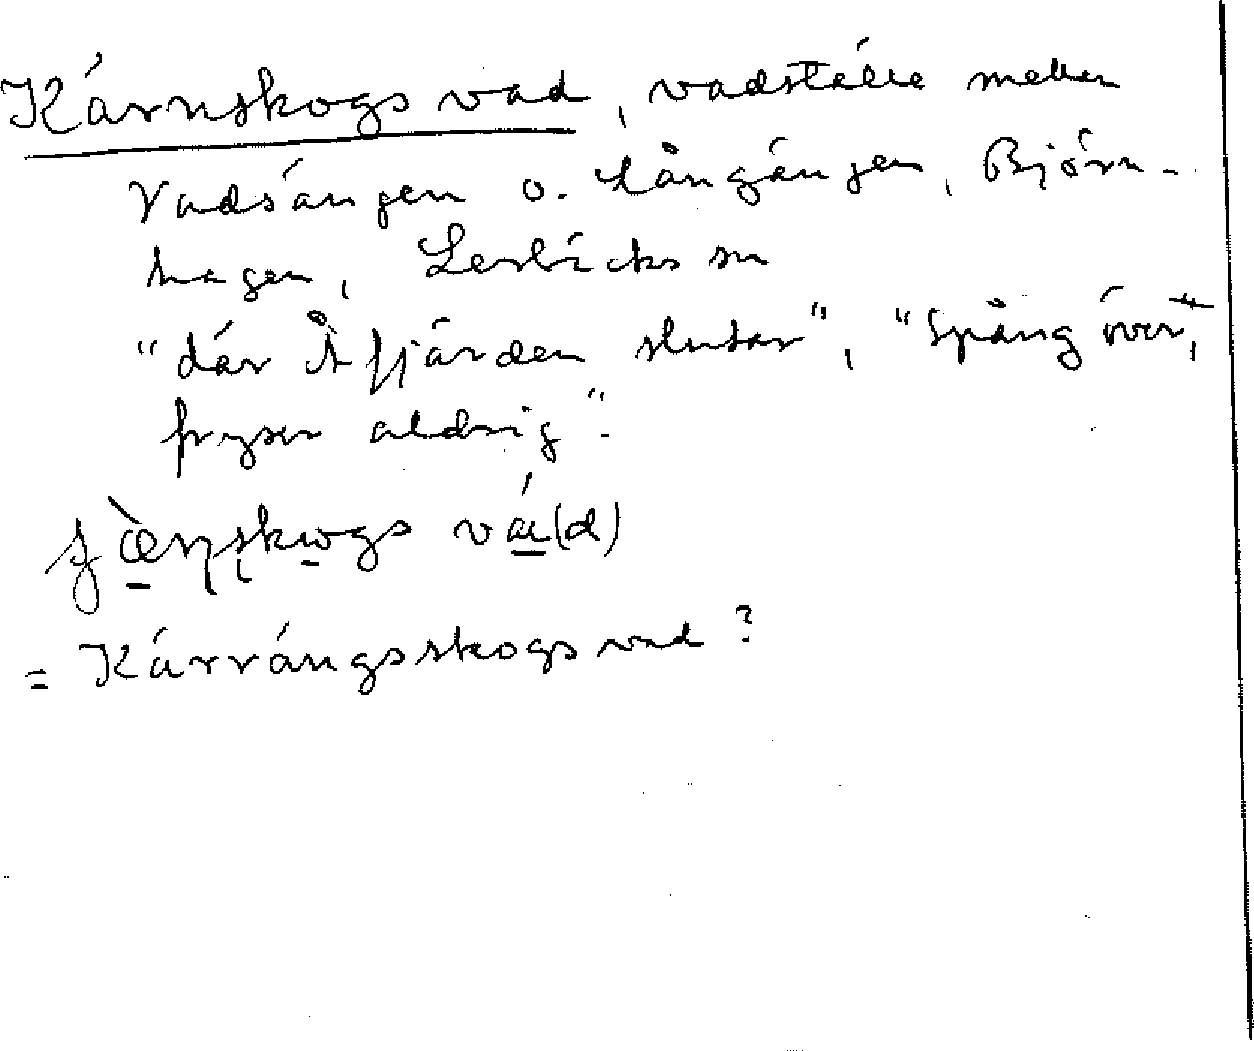 Kärnskogs vad, vadställe mellan
Vadsängen o. Långängen, Björn-
hagen, Lerbäcks sn
"där Åfjärden slutar", "spång över,
fryser aldrig".
vá(d)
= Kärrängsskogsvad?